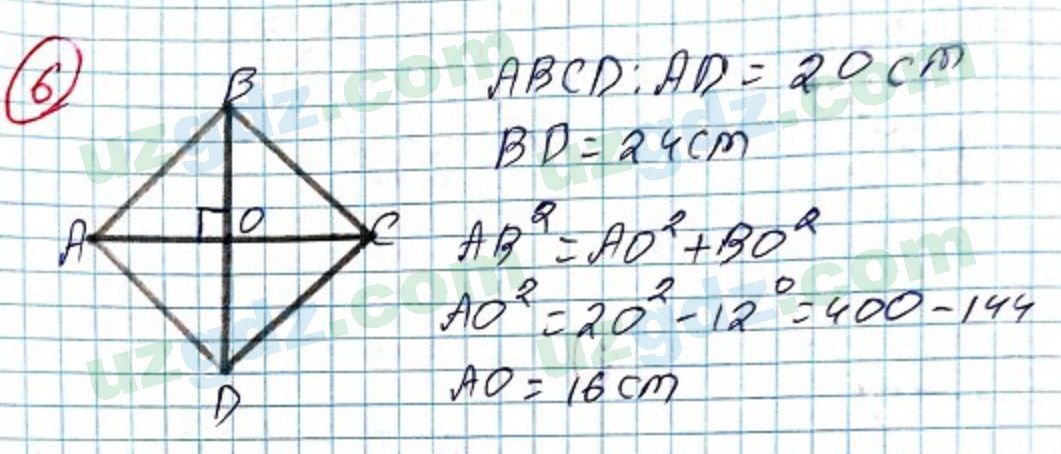 6
B
ABCD: AD = 20 cm
BD = 24 cm
A
O
C
AB² = AO² + BO²
AO² = 20² - 12⁰ = 400 - 144
AO = 16 cm
D
uzgdz.com
uzgdz.com
uzgdz.com
uzgdz.com